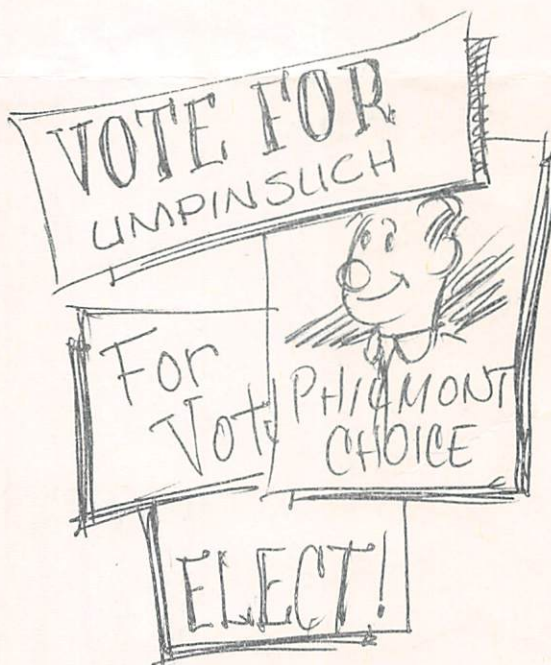 VOTE FOR
UMPINSUCH
For
Vote
PHILMONT
CHOICE
ELECT!